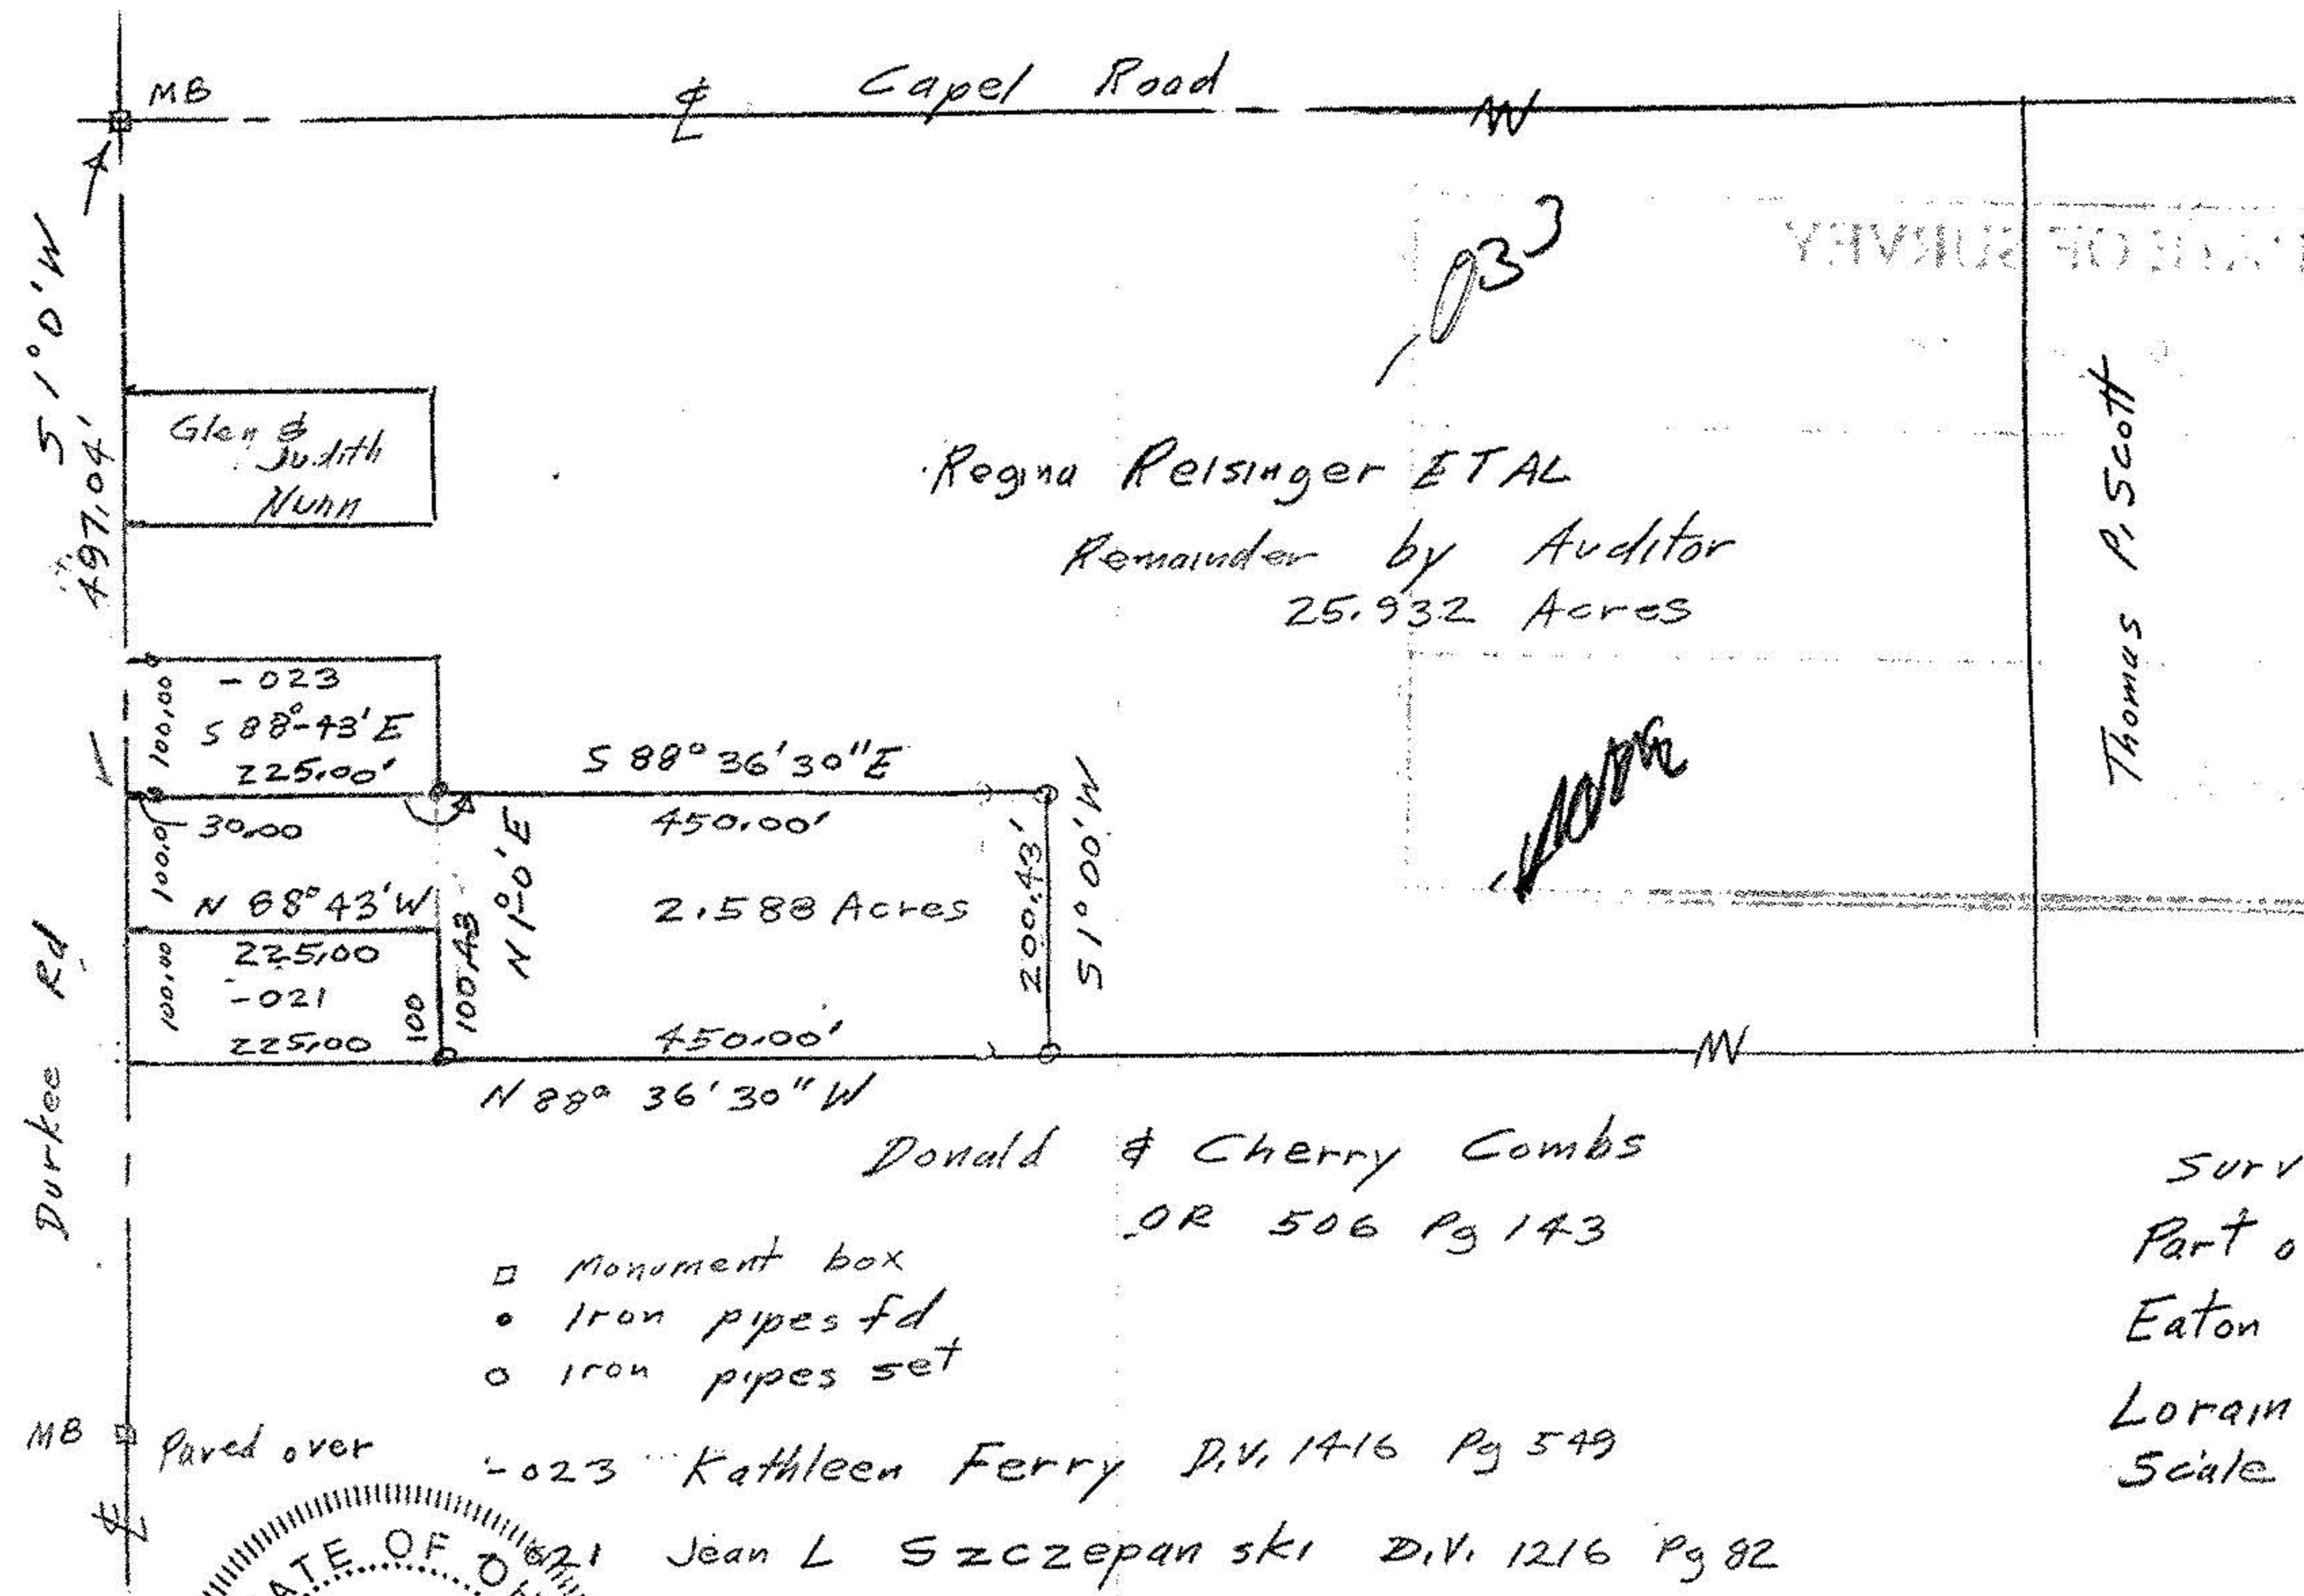 MB
℄ Capel Road
S 1° 0' W
497.04'
Glen &
Judith
Nunn
,033
Regina Reisinger ETAL
Remainder by Auditor
25.932 Acres
Thomas P. Scott
OF SURVEY
-023
S 88°-43' E
225.00'
100.00
30.00
S 88° 36' 30" E
450.00'
100.0
N 88° 43' W
225.00
-021
225.00
100.00
100
100.43
N 1°-0' E
2.588 Acres
200.43'
S 1° 00' W
450.00'
N 88° 36' 30" W
Durkee Rd
Donald & Cherry Combs
OR 506 Pg 143
□ Monument box
• Iron pipes fd
○ iron pipes set
MB Paved over
℄
-023 Kathleen Ferry D.V. 1416 Pg 549
-021 Jean L Szczepanski D.V. 1216 Pg 82
Surv
Part o
Eaton
Lorain
Scale
ATE OF OH